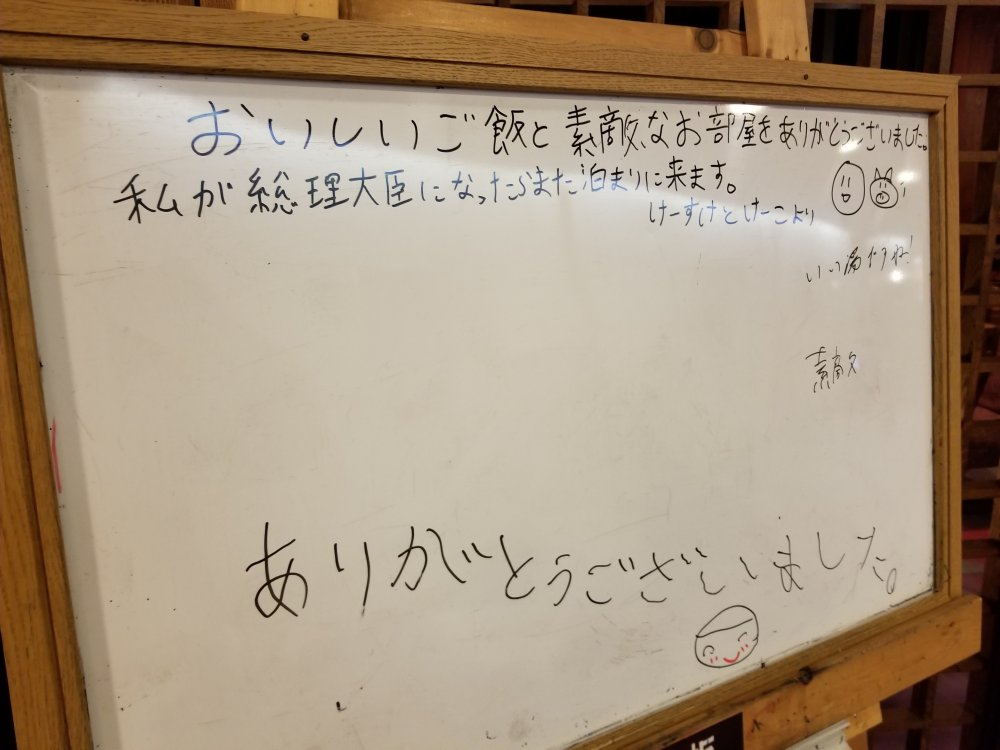 おいしいご飯と素敵なお部屋をありがとうございました。
私が総理大臣になったらまた泊まりに来ます。
けーすけとけーこより
いい湯だすね!
素敵
ありがとうございました。